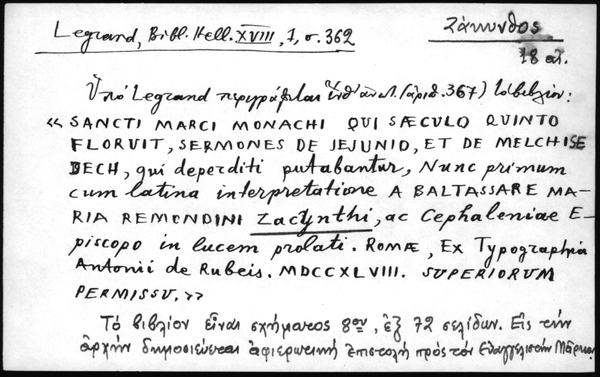 Legrand, Bibl. Hell. XVIII, 1, σ. 362
Ζάκυνθος
18 αἰ.
Ὑπὸ Legrand περιγράφεται ἔνθ' ἀν. (ἀριθ. 367) τὸ βιβλίον:
«SANCTI MARCI MONACHI QUI SÆCULO QUINTO
FLORVIT, SERMONES DE JEJUNIO, ET DE MELCHISE
DECH, qui deperditi putabantur, Nunc primum
cum latina interpretatione A BALTASSARE MA-
RIA REMONDINI Zacynthi, ac Cephaleniae E-
piscopo in lucem prolati. ROMÆ, Ex Typographia
Antonii de Rubeis. MDCCXLVIII. SUPERIORUM
PERMISSU.»
Τὸ βιβλίον εἶναι σχήματος 8ον, ἐξ 72 σελίδων. Εἰς τὴν
ἀρχὴν δημοσιεύεται ἀφιερωτικὴ ἐπιστολὴ πρὸς τὸν Εὐαγγελιστὴν Μάρκον